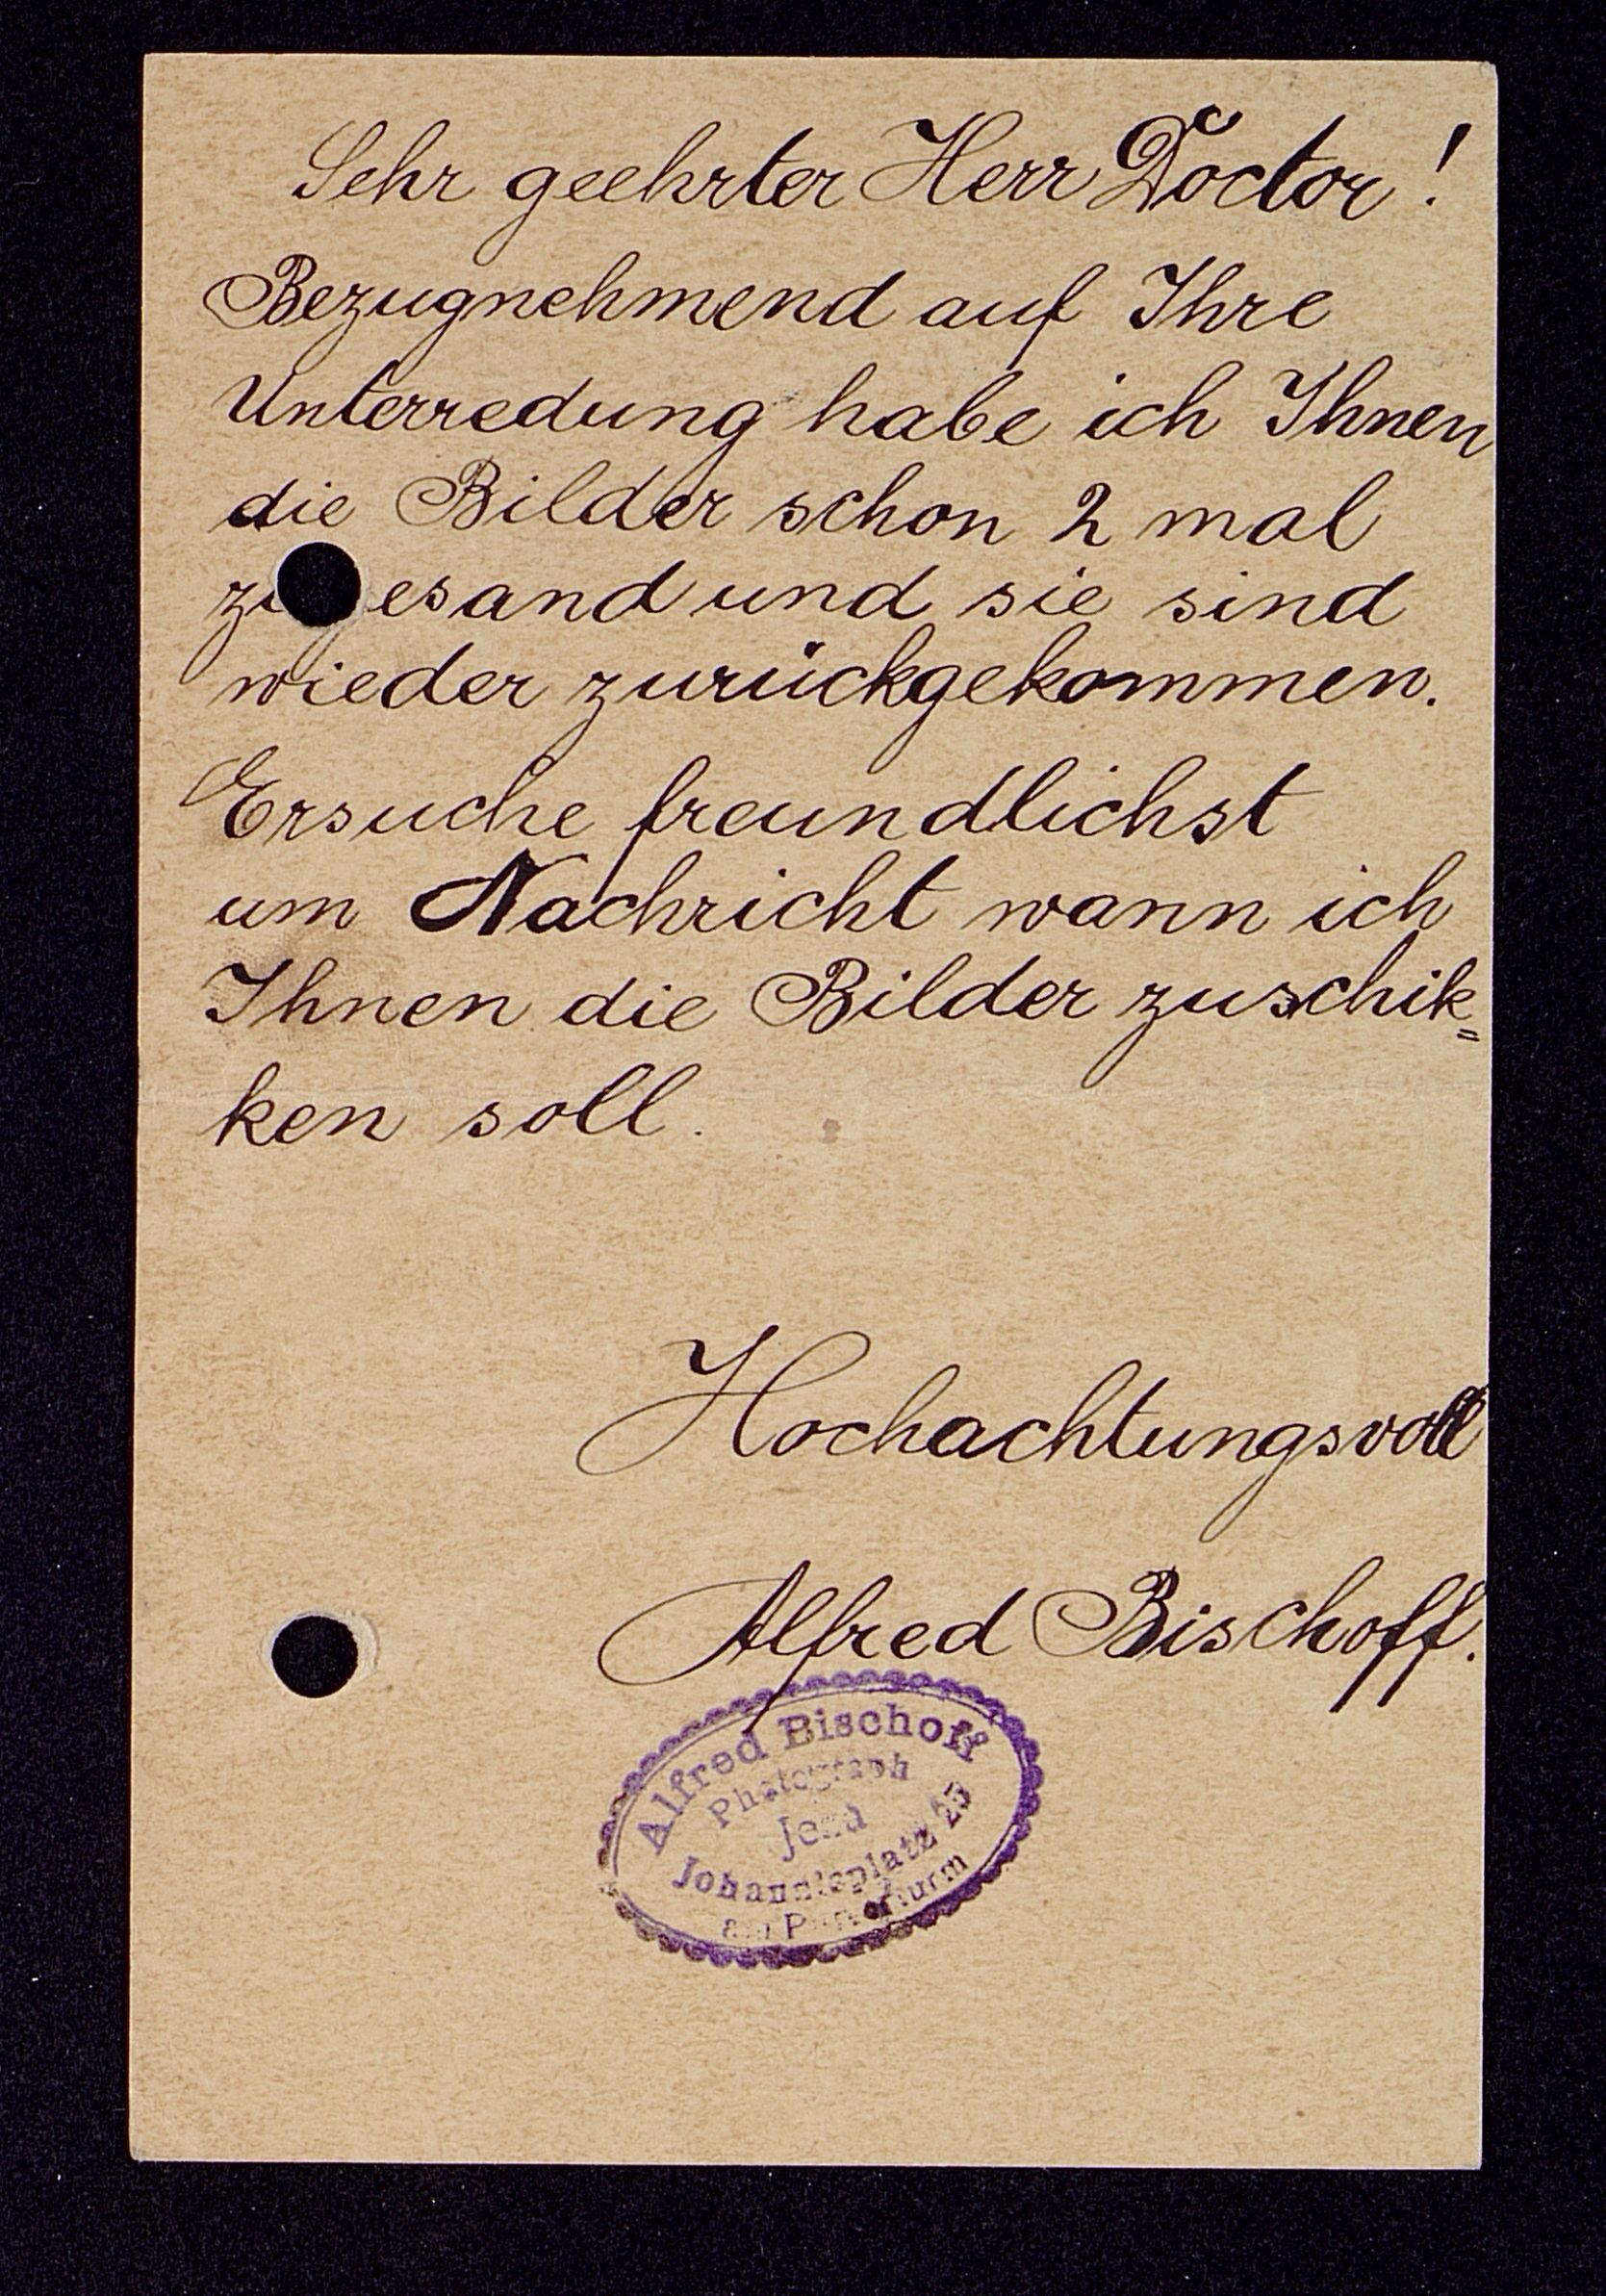 Sehr geehrter Herr Doctor!
Bezugnehmend auf Ihre
Unterredung habe ich Ihnen
die Bilder schon 2 mal
zugesand und sie sind
wieder zurückgekommen.
Ersuche freundlichst
um Nachricht wann ich
Ihnen die Bilder zuschik=
ken soll.
Hochachtungsvoll
Alfred Bischoff.
Alfred Bischoff
Photograph
Jena
Johannisplatz 25
am Pulverturm